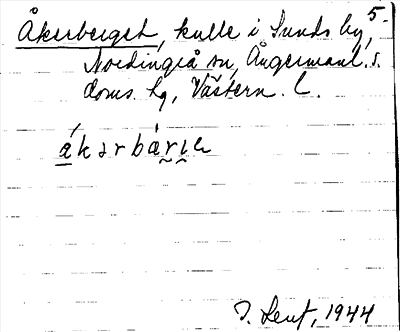 5.
Åkerberget, kulle i Sunds by,
Nordingrå sn, Ångermanl. s.
doms. hg, Västern. l.
J. Lenf, 1944